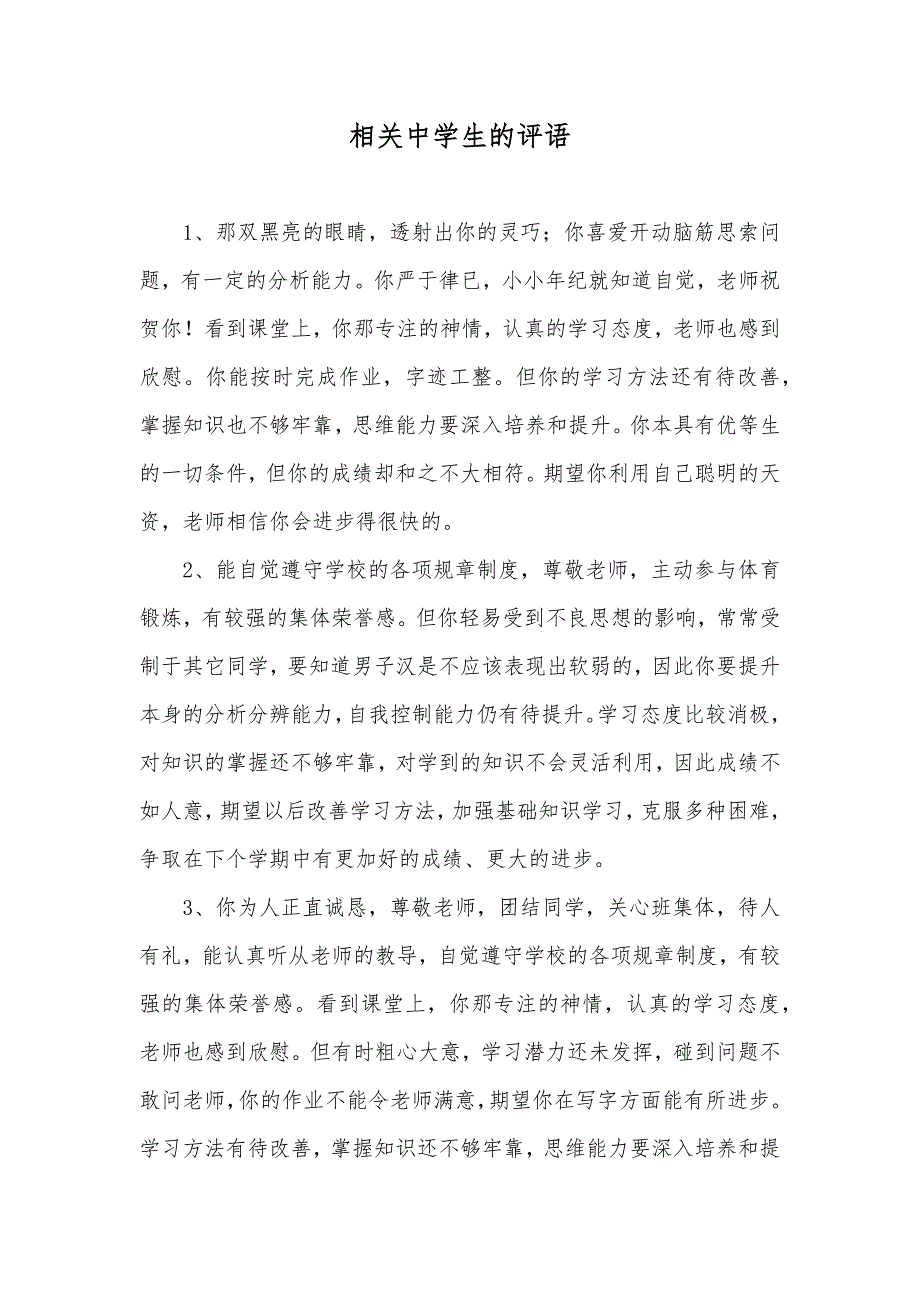 相关中学生的评语
1、那双黑亮的眼睛，透射出你的灵巧；你喜爱开动脑筋思索问
题，有一定的分析能力。你严于律已，小小年纪就知道自觉，老师祝
贺你！看到课堂上，你那专注的神情，认真的学习态度，老师也感到
欣慰。你能按时完成作业，字迹工整。但你的学习方法还有待改善，
掌握知识也不够牢靠，思维能力要深入培养和提升。你本具有优等生
的一切条件，但你的成绩却和之不大相符。期望你利用自己聪明的天
资，老师相信你会进步得很快的。
2、能自觉遵守学校的各项规章制度，尊敬老师，主动参与体育
锻炼，有较强的集体荣誉感。但你轻易受到不良思想的影响，常常受
制于其它同学，要知道男子汉是不应该表现出软弱的，因此你要提升
本身的分析分辨能力，自我控制能力仍有待提升。学习态度比较消极，
对知识的掌握还不够牢靠，对学到的知识不会灵活利用，因此成绩不
如人意，期望以后改善学习方法，加强基础知识学习，克服多种困难，
争取在下个学期中有更加好的成绩、更大的进步。
3、你为人正直诚恳，尊敬老师，团结同学，关心班集体，待人
有礼，能认真听从老师的教导，自觉遵守学校的各项规章制度，有较
强的集体荣誉感。看到课堂上，你那专注的神情，认真的学习态度，
老师也感到欣慰。但有时粗心大意，学习潜力还未发挥，碰到问题不
敢问老师，你的作业不能令老师满意，期望你在写字方面能有所进步。
学习方法有待改善，掌握知识还不够牢靠，思维能力要深入培养和提